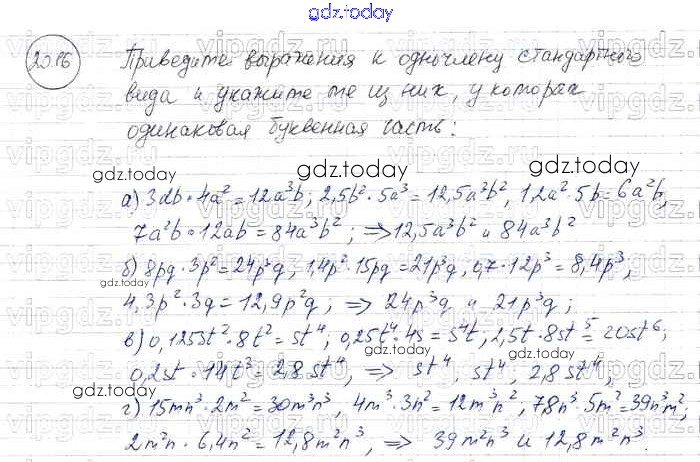 gdz.today
20.16 Приведите выражения к одночлену стандартного
вида и укажите те из них, у которых
одинаковая буквенная часть:
gdz.today gdz.today
а) 3ab·4a² = 12a³b; 2,5b²·5a³ = 12,5a³b², 1,2a²·5b = 6a²b,
7a²b·12ab = 84a³b²; ⇒ 12,5a³b² и 84a³b²
gdz.today
б) 8pq·3p² = 24p³q, 1,4p²·15pq = 21p³q, 0,7·12p³ = 8,4p³,
gdz.today
4,3p²·3q = 12,9p²q; ⇒ 24p³q и 21p³q;
в) 0,125st²·8t² = st⁴, 0,25t⁴·4s = s⁴t; 2,5t·8st⁵ = 20st⁶;
gdz.today
0,2st·14t³ = 2,8st⁴, ⇒ st⁴, st⁴, 2,8st⁴,
gdz.today
г) 15mn³·2m² = 30m³n³, 4m³·3n² = 12m³n², 7,8n³·5m² = 39n³m²;
2m²n·6,4n² = 12,8m²n³, ⇒ 39m²n³ и 12,8m²n³.
gdz.today